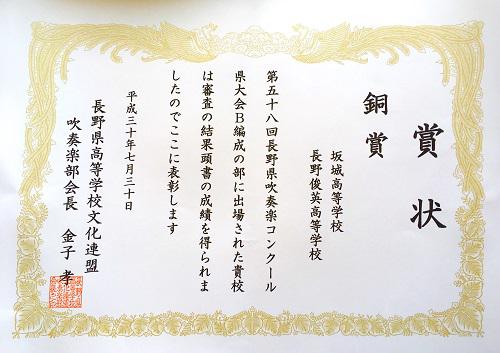 賞状
銅賞
坂城高等学校
長野俊英高等学校
第五十八回長野県吹奏楽コンクール
県大会B編成の部に出場された貴校
は審査の結果頭書の成績を得られま
したのでここに表彰します
平成三十年七月三十日
長野県高等学校文化連盟
吹奏楽部会長 金子 孝